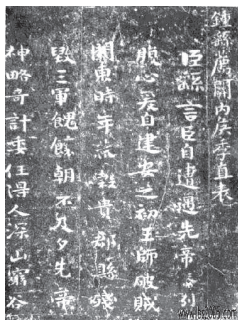 鍾繇薦關內侯季直表
臣繇言臣自遭遇先帝忝列
腹心爰自建安之初王師破賊
關東時年荒穀貴郡縣殘
毀三軍餽饟朝不及夕先帝
神略奇計委任得人深山窮谷